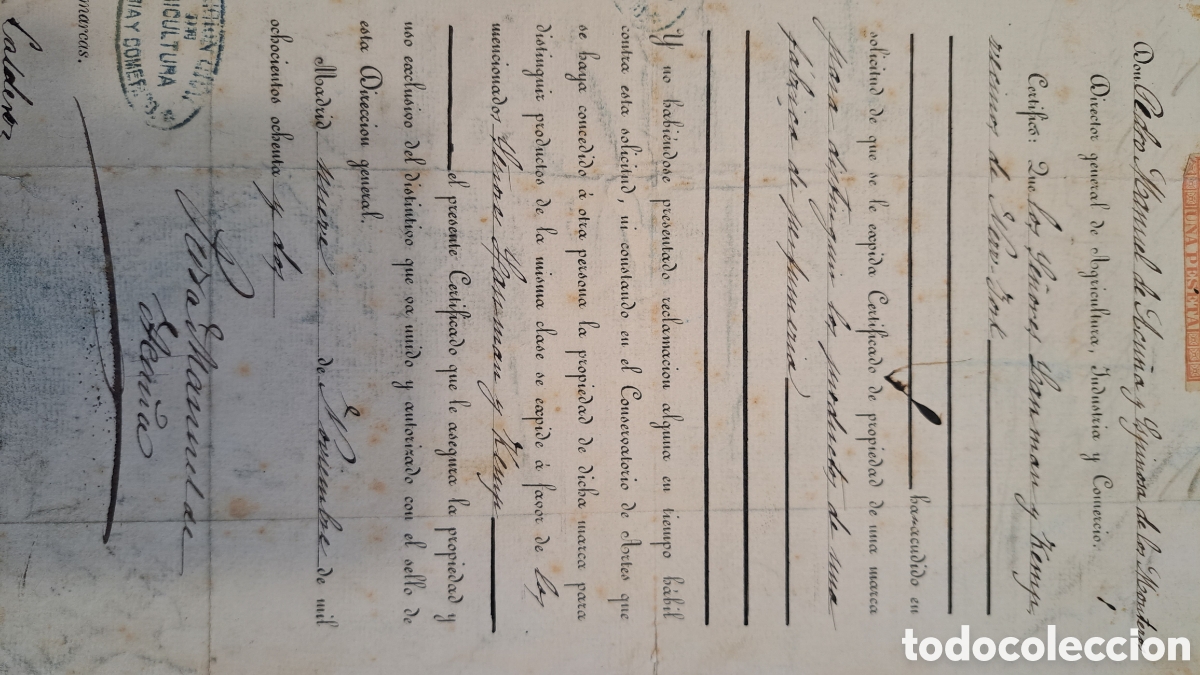 UNA PESETA
Don Pedro Manuel de Acuña y Espinosa de los Monteros
Director general de Agricultura, Industria y Comercio.
Certifico: Que los Señores Lanman y Kemp,
vecinos de New-York
han acudido en
solicitud de que se le expida Certificado de propiedad de una marca
para distinguir los productos de una
fábrica de perfumeria,
Y no habiéndose presentado reclamacion alguna en tiempo hábil
contra esta solicitud, ni constando en el Conservatorio de Artes que
se haya concedido á otra persona la propiedad de dicha marca para
distinguir productos de la misma clase se expide á favor de los
mencionados Señores Lanman y Kemp
el presente Certificado que le asegura la propiedad y
uso exclusivo del distintivo que va unido y autorizado con el sello de
esta Direccion general.
Madrid nueve de Noviembre de mil
ochocientos ochenta y dos
Pedro Manuel de
Acuña
AGRICULTURA
marcas.
todocoleccion